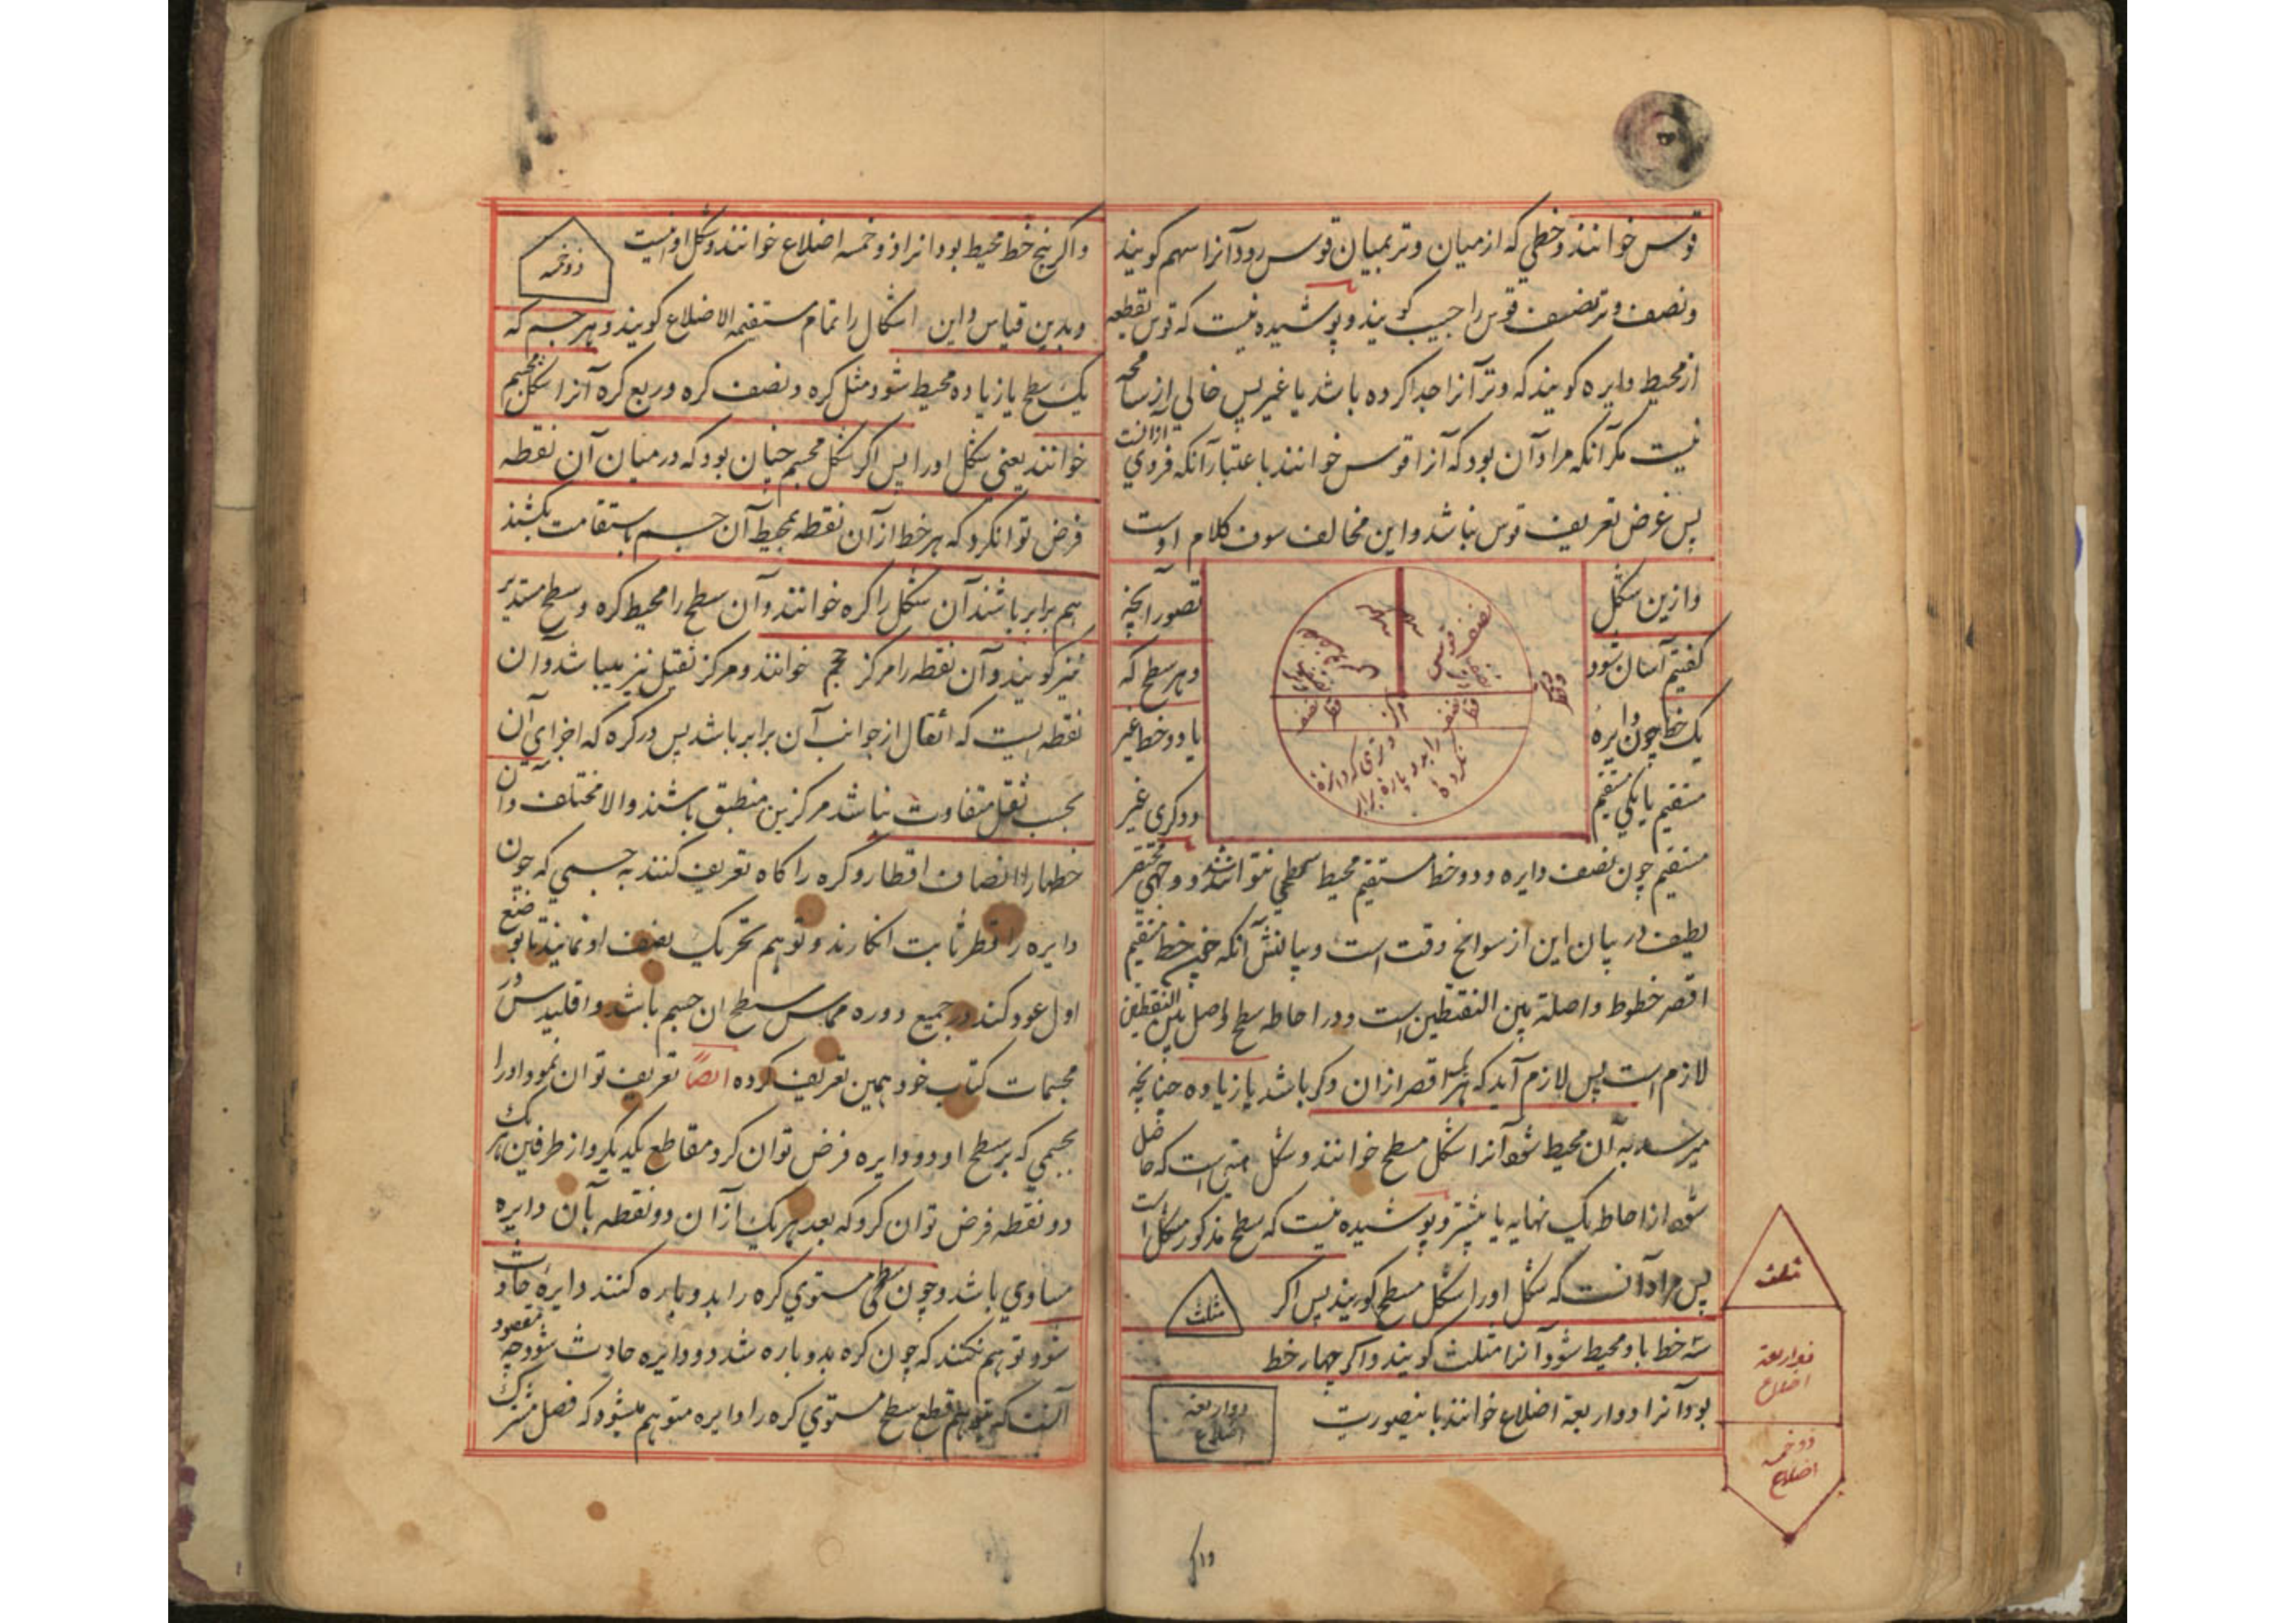 قوس خوانند و خطی که از میان وتر بمیان قوس رود آنرا سهم کویند
و نصف وتر نصف قوس را جیب کویند و پوشیده نیست که قوس بقطعه
از محیط دایره کویند که وتر آنرا جدا کرده باشد یا غیر پس خالی از مسامحه
نیست مکر آنکه مراد آن بود که آنرا قوس خوانند با عتبار آنکه فردی از آنست
پس غرض تعریف قوس نباشد و این مخالف سوف کلام اوست
وازین شکل
تصور آنچه
کفتیم آسان شود
و هر سطح که
یک خط چون دایره
یا دو خط غیر
مستقیم یا یکی مستقیم
و دکری غیر
نصف قوس
نصف قطر
مرکز
نصف قطر
مستقیم چون نصف دایره و دو خط مستقیم محیط سطحی نتوانند شد و وجهی مختصر
لطیف در بیان این از سوانح وقت است و بیانش آنکه خط مستقیم
اقصر خطوط واصلة بین النقطتین است و در احاطه سطح واصل بین النقطتین
لازم است پس لازم آید که هر اقصر از ان دکر باشد یا زیاده چنانچه
میرسد به آن محیط شود آنرا شکل مسطح خوانند و شکل است که حاصل
شود از احاطه یک نهایه یا بیشتر و پوشیده نیست که سطح مذکور شکل است
پس مراد آنست که شکل او را شکل مسطح کویند پس اکر
مثلث
سه خط باو محیط شود آنرا مثلث کویند و اکر چهار خط
بود آنرا ذو اربعة اضلاع خوانند باینصورت
ذو اربعة
اضلاع
مثلث
ذو اربعة
اضلاع
ذو خمسة
اضلاع
واکر پنج خط محیط بود انرا ذو خمسه اضلاع خوانند و شکل او اینست
ذو خمسه
و بدین قیاس و این اشکال را تمام مستقیمه الاضلاع کویند و هر جسم که
یک سطح یا زیاده محیط شود مثل کره و نصف کره و ربع کره آنرا شکل مجسم
خوانند یعنی شکل او را پس اکر شکل مجسم چنان بود که در میان آن نقطه
فرض توان کرد که هر خط از آن نقطه بمحیط آن جسم باستقامت بکشند
هم برابر باشند آن شکل را کره خوانند و آن سطح را محیط کره و سطح مستدیر
نیز کویند و آن نقطه را مرکز حجم خوانند و مرکز ثقیل نیز میباشد و آن
نقطه ایست که اثقال از جوانب آن برابر باشد پس در کره که اجزای آن
بحسب ثقل متفاوت نباشد مرکزین منطبق باشند والا مختلف و آن
خطها را انصاف اقطار و کره را کاه تعریف کنند به جسمی که چون
دایره را قطر ثابت انکارند و توهم تحریک نصف او نمایند تا بوضع
اول عود کند در جمیع دوره مماس سطح ان جسم باشد و اقلیدس در
مجسمات کتاب خود همین تعریف کرده ایضاً تعریف توان نمود او را
بجسمی که بر سطح او دو دایره فرض توان کرد مقاطع یکدیکر و از طرفین هر یک
دو نقطه فرض توان کرد که بعد هر یک از آن دو نقطه بآن دایره
مساوی باشد و چون سطحی مستوی کره را بدو پاره کنند دایره حادث
شود و توهم نکنند که چون کره بدو پاره شد دو دایره حادث شود چه مقصود
آنست که قطع سطح مستوی کره را دایره متوهم میشود که فصل مشترک